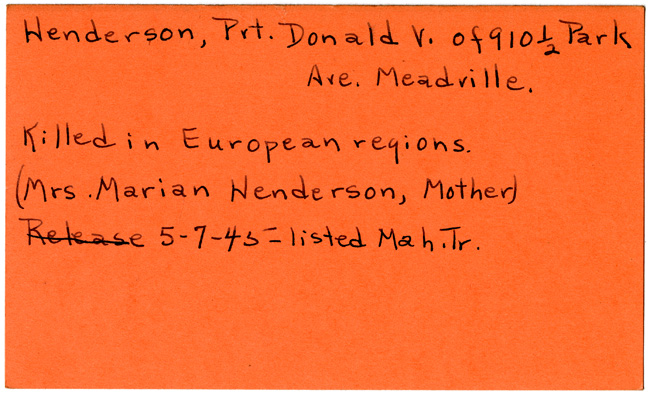 Henderson, Pvt. Donald V. of 910 1/2 Park
Ave. Meadville.
Killed in European regions.
(Mrs. Marian Henderson, Mother)
Release 5-7-45 = listed Mah. Tr.